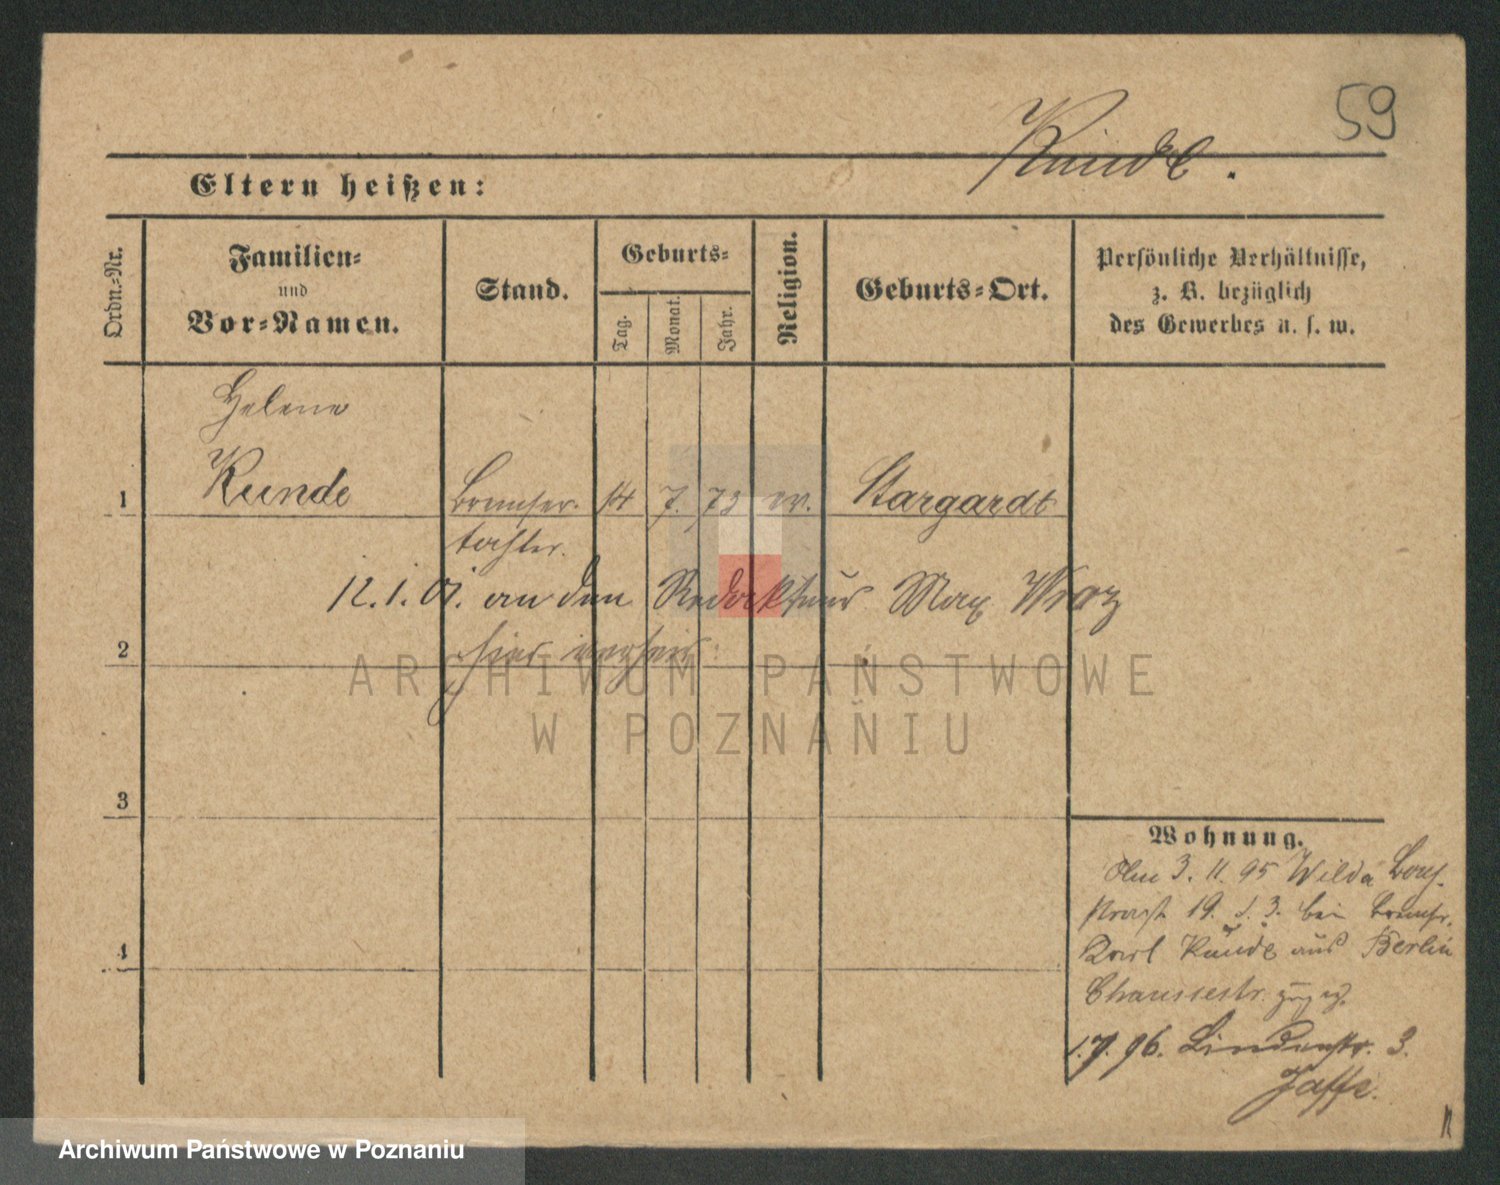 59
Kunde.
Eltern heißen:
Ordn.-Nr.
Familien-
und
Vor-Namen.
Stand.
Geburts-
Tag.
Monat.
Jahr.
Religion.
Geburts-Ort.
Persönliche Verhältnisse,
z. B. bezüglich
des Gewerbes u. s. w.
Helene
1 Kunde 14 7. 73 ev. Stargardt
tochter.
12.1.01. an den Redakteur Max
2 hier verheir.
3
Wohnung.
3. 11. 95 Wilda
19. bei
4 Karl Kunde aus Berlin
Chausseestr.
1.7.96. Lindenstr. 3.
Jaffe.
ARCHIWUM PAŃSTWOWE
W POZNANIU
Archiwum Państwowe w Poznaniu